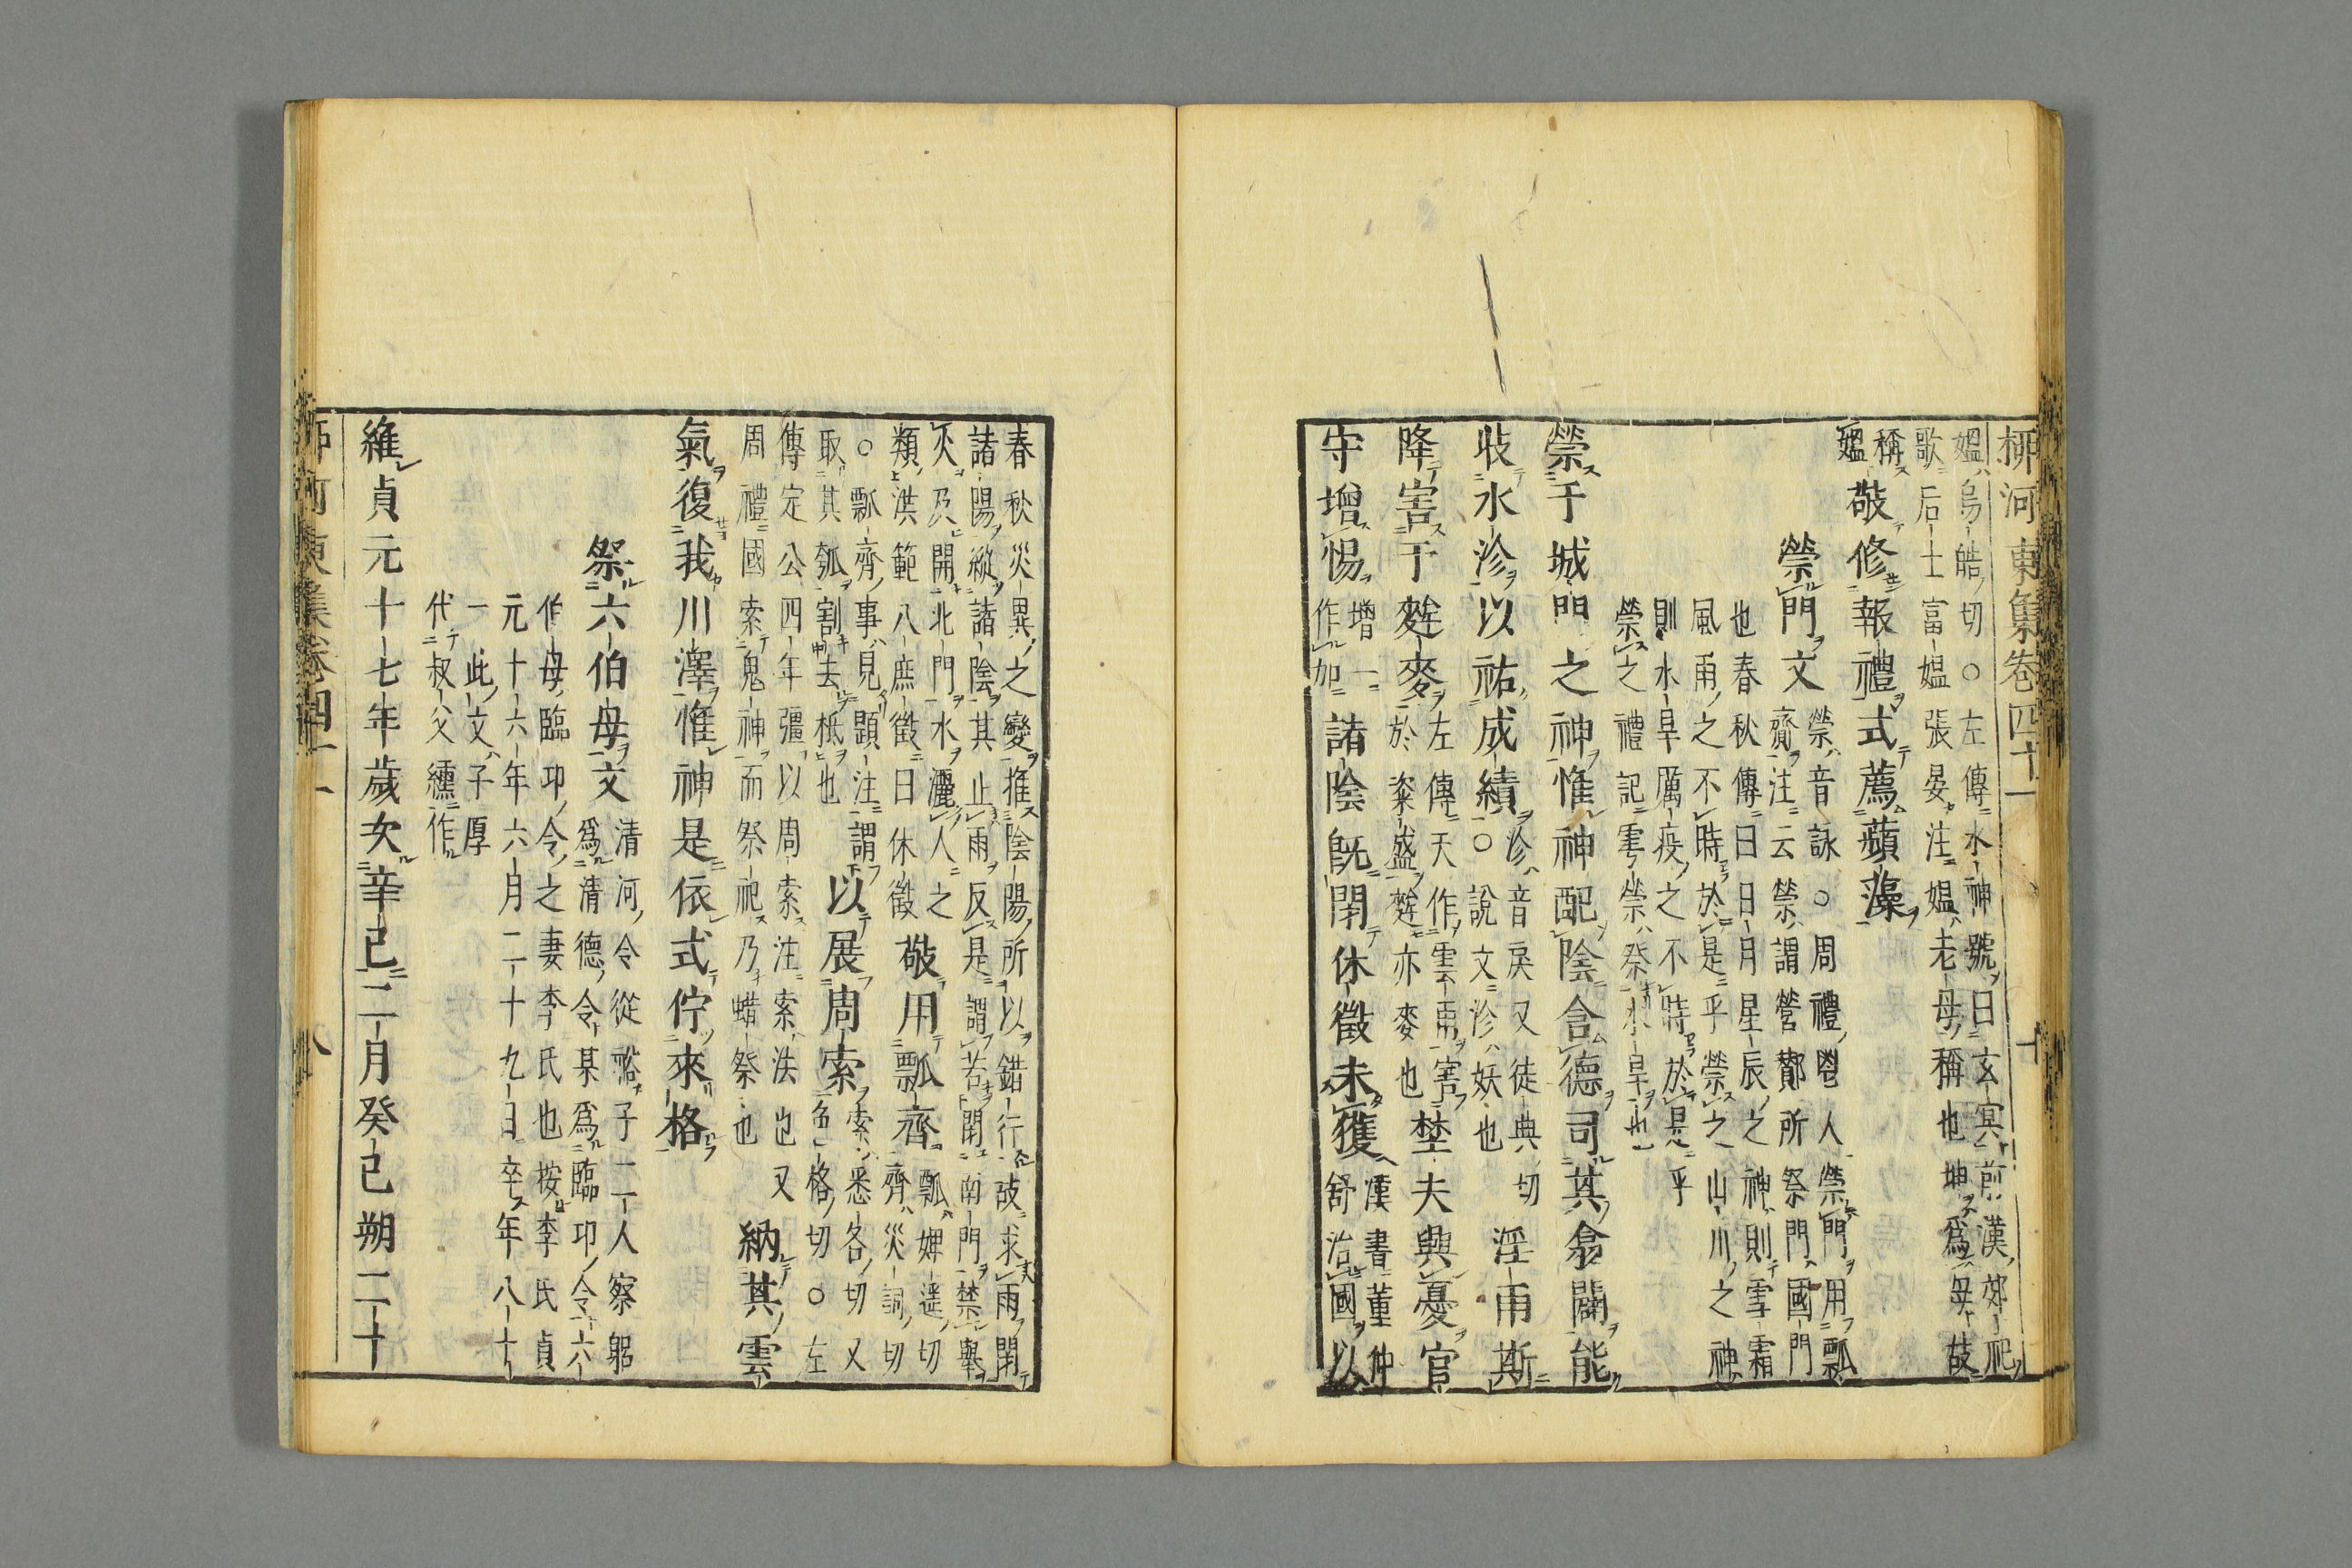 柳河東集卷四十一
十
媼烏皓切○左傳水神號曰玄冥前漢郊祀
歌后土富媼張晏注媼老母稱也坤爲母故
稱
媼敬修報禮式薦蘋藻
禜門文禜音詠○周禮鬯人禜門用瓢
齎注云禜謂營酇所祭門國門
也春秋傳曰日月星辰之神則雪霜
風雨之不時於是乎禜之山川之神
則水旱厲疫之不時於是乎
禜之禮記雩禜祭水旱也
禜于城門之神惟神配陰含德司其翕闢能
收水沴以祐成績沴音戾又徒典切
○說文沴妖也淫雨斯
降害于麰麥左傳天作雲雨害
於粢盛麰亦麥也埜夫興憂官
守增惕增一
作加諸陰既閉休徵未獲漢書董仲
舒治國以
春秋災異之變推陰陽所以錯行故求雨閉
諸陽縱諸陰其止雨反是謂若閉南門禁舉
火及開北門水灑人之
類洪範八庶徵曰休徵敬用瓢齊瓢婢遥切
齊災詞切
○瓢齊事見題注謂
取其瓠割去柢也以展周索索悉各切又
色格切○左
傳定公四年彊以周索注索法也又
周禮國索鬼神而祭祀乃蜡祭也納其雲
氣復我川澤惟神是依式佇來格
祭六伯母文清河令從裕子二人察躬
爲清德令某爲臨邛令六
伯母臨邛令之妻李氏也按李氏貞
元十六年六月二十九日卒年八十
一此文子厚
代叔父纁作
維貞元十七年歲次辛巳二月癸巳朔二十
柳河東集卷四十一
八